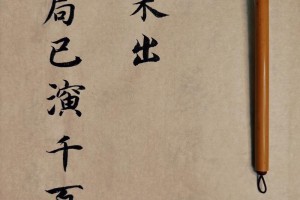 未出
局已演千百